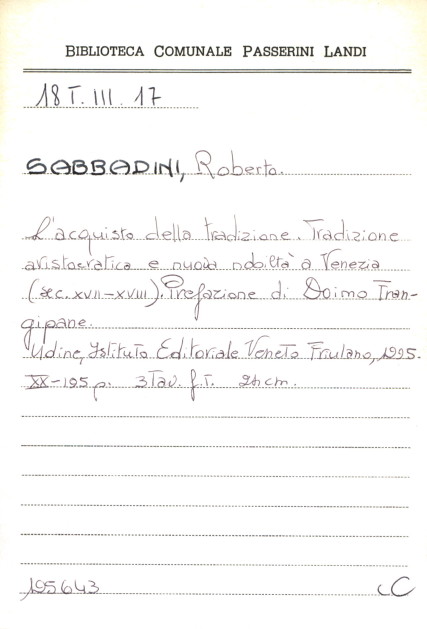 BIBLIOTECA COMUNALE PASSERINI LANDI
18 T. III. 17
SABBADINI, Roberto.
L'acquisto della tradizione. Tradizione
aristocratica e nuova nobiltà a Venezia
(sec. XVII-XVIII). Prefazione di Doimo Fran-
gipane.
Udine, Istituto Editoriale Veneto Friulano, 1995.
XX-195 p. 3 Tav. f.T. 24 cm.
195643